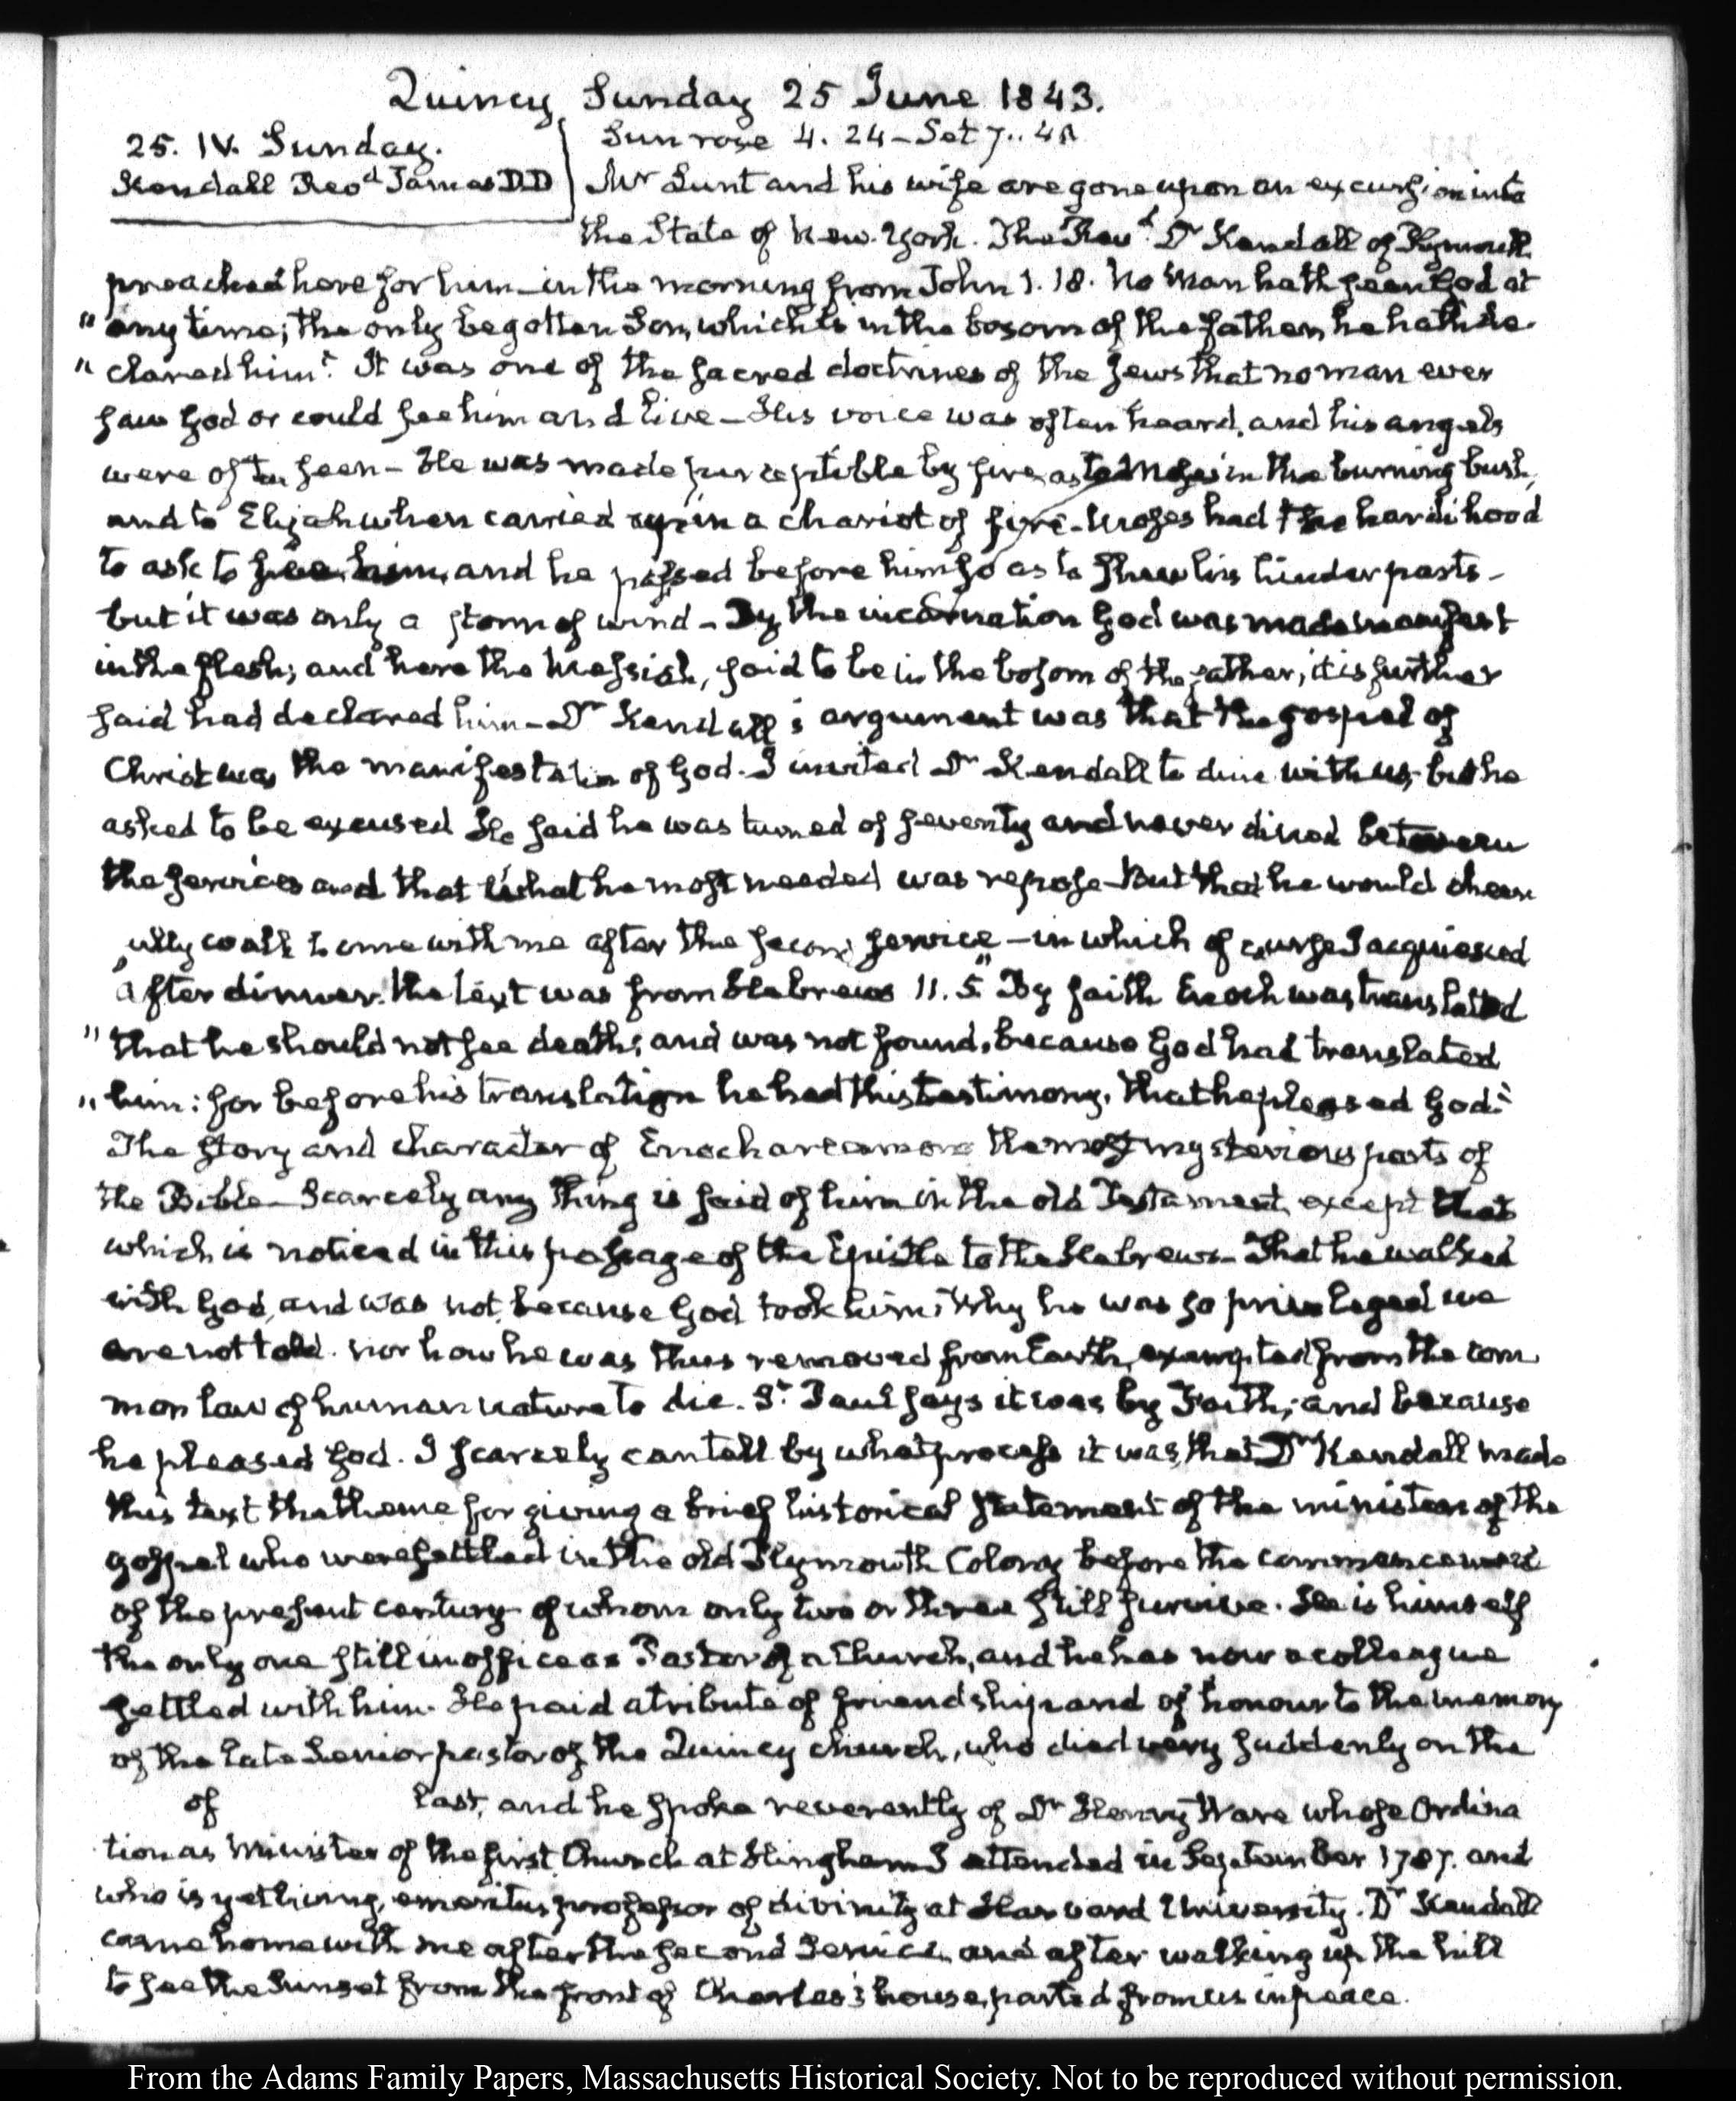 Quincy Sunday 25 June 1843.
25. IV. Sunday.
Kendall Revd James D.D
Sun rose 4. 24 – Set 7..41
Mr Lunt and his wife are gone upon an excursion into
the State of New-York. The Revd. Dr Kendall of Plymouth
preached here for him – in the morning from John 1. 18. No Man hath seen God at
"any time; the only begotten Son, which is in the bosom of the father, he hath de-
"clared him". It was one of the sacred doctrines of the Jews that no man ever
saw God or could see him and live – His voice was often heard, and his angels
were often seen – He was made perceptible by fire, as to Moses in the burning bush,
and to Elijah when carried up in a chariot of fire – Moses had the hardihood
to ask to see him, and he passed before him so as to shew his hinder parts –
but it was only a storm of wind – By the incarnation God was made manifest
in the flesh; and here the Messiah, said to be in the bosom of the father, it is further
said had declared him – Dr Kendall's argument was that the gospel of
Christ was the manifestation of God. I invited Dr Kendall to dine with us, but he
asked to be excused He said he was turned of seventy and never dined between
the services and that what he most needed was repose – but that he would cheer
fully walk home with me after the second service – in which of course I acquiesced
After dinner. the text was from Hebrews 11. 5. "By faith Enoch was translated
"that he should not see death; and was not found, because God had translated
"him: for before his translation he had this testimony, that he pleased God."
The story and character of Enoch are among the most mysterious parts of
the Bible – Scarcely any thing is said of him in the old Testament, except that
which is noticed in this passage of the Epistle to the Hebrews – That he walked
with God, and was not, because God took him; Why he was so privileged we
are not told. nor how he was thus removed from Earth, exempted from the com
mon law of human nature to die. St. Paul says it was by Faith; and because
he pleased God. I scarcely can tell by what process it was, that Dr Kendall made
this text the theme for giving a brief historical statement of the ministers of the
gospel who were settled in the old Plymouth Colony before the commencement
of the present century of whom only two or three still survive. He is himself
the only one still in office as Pastor of a Church, and he has now a colleague
settled with him. He paid a tribute of friendship and of honour to the memory
of the late Senior pastor of the Quincy church, who died very suddenly on the
of last, and he spoke reverently of Dr Henry Ware whose Ordina
tion as Minister of the first Church at Hingham I attended in September 1787. and
who is yet living, emeritus professor of divinity at Harvard University. Dr Kendall
came home with me after the second Service and after walking up the hill
to see the Sunset from the front of Charles's house, parted from us in peace.
From the Adams Family Papers, Massachusetts Historical Society. Not to be reproduced without permission.